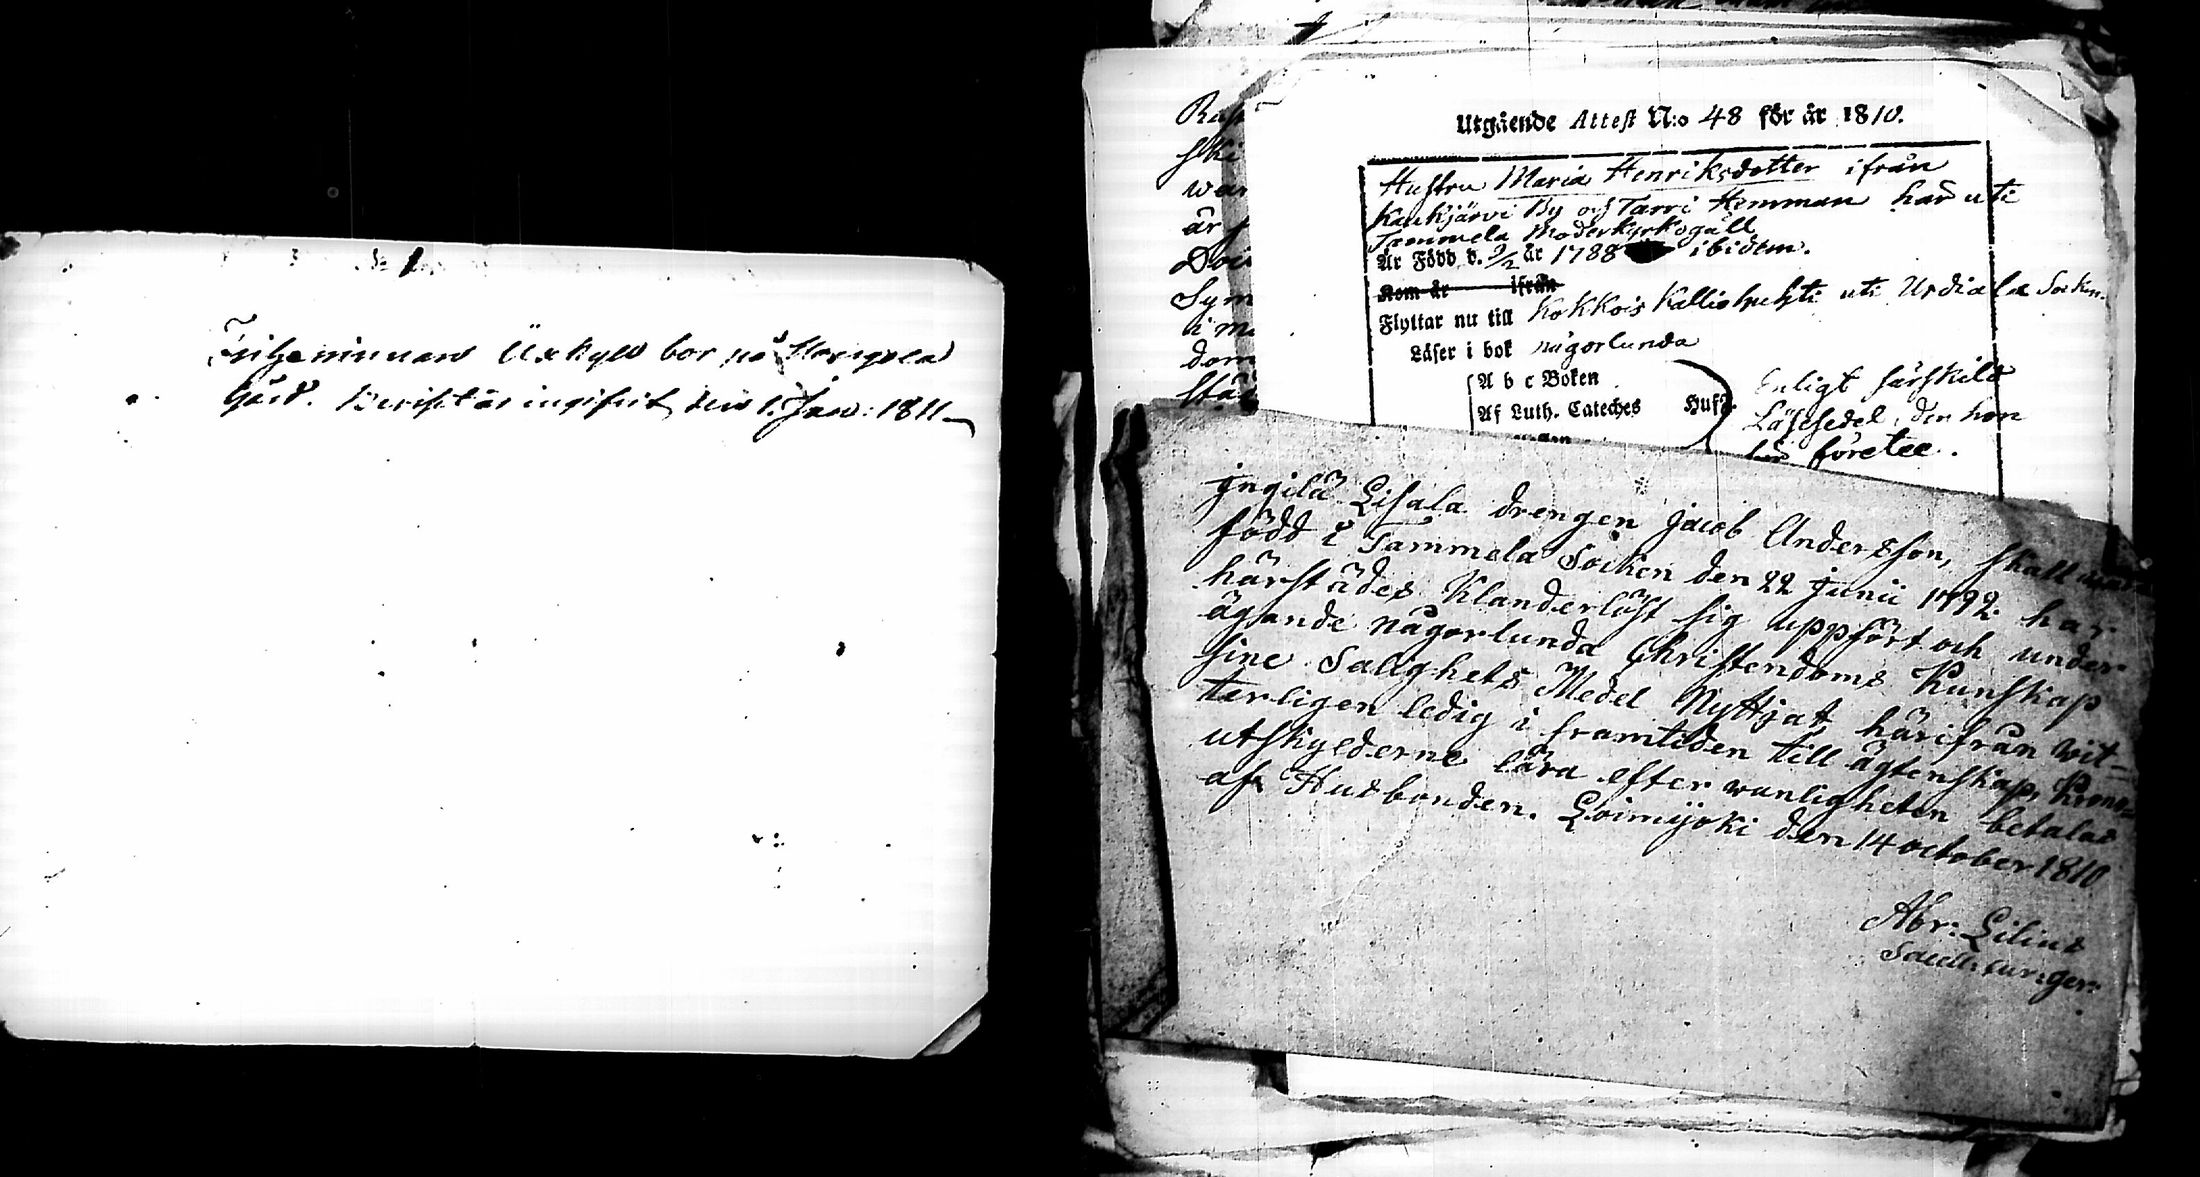 Friherrinnan Üxkyld bor på
Gård. Beviset är ingifvit den 1. Jan: 1811
Utgående Attest N:o 48 för år 1810.
Hustru Maria Henriksdotter ifrån
Kaukjärvi By och Tarri Hemman har uti
Tammela Moderkyrkogäll
Är Född d. 9/2 år 1788 ibidem.
Kom år ifrån
Flyttar nu till Kokkois Kalliohuhti uti Urdiala Socken.
Läser i bok någorlunda
A b c Boken
Af Luth. Cateches Husf.
Enligt särskild
Läsesedel, den hon
börföretee.
Jngilä Lisala drengen Jacob Andersson, skall
född i Tammela Socken den 22 Junii 1792. har
härstädes Klanderlöst sig uppfört och under
ägande någorlunda Christendoms Kunskap
sine Salighets Medel Nyttjat härifrån wit-
terligen ledig i framtiden till ägtenskap, Krono-
utskylderne lära efter wanligheten betalas
af Husbonden. Loimijoki den 14 october 1810
Abr: Lilius